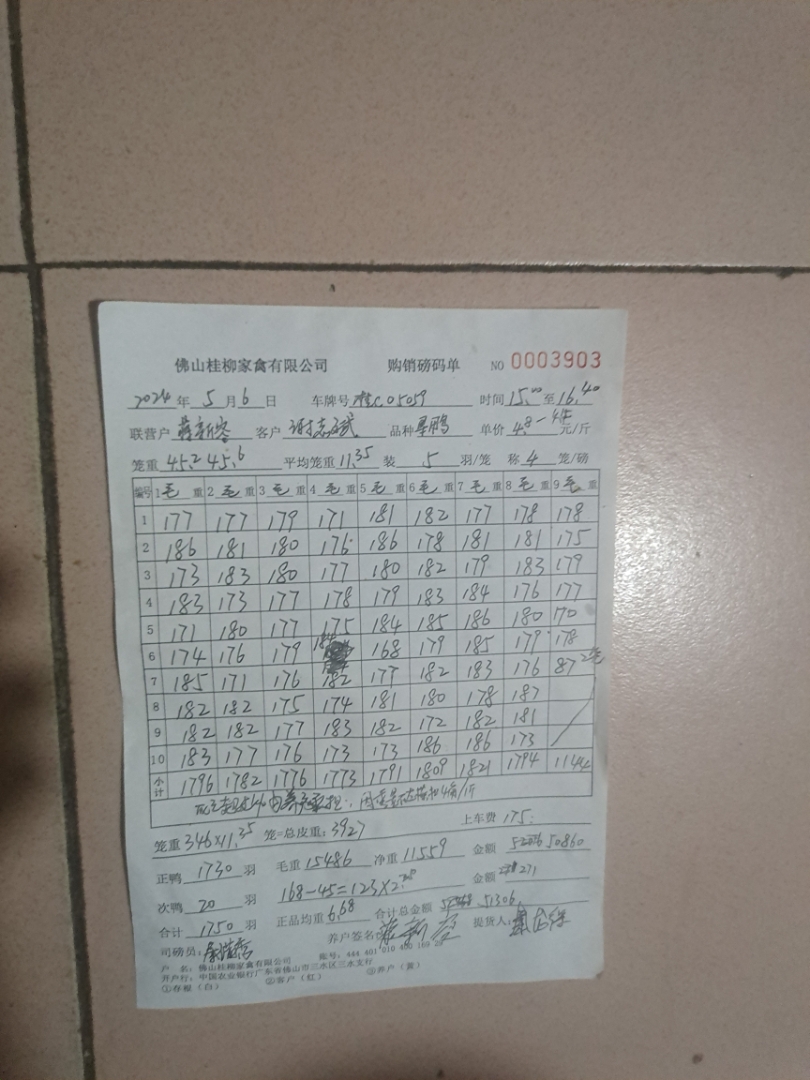 佛山桂柳家禽有限公司 购销磅码单 NO 0003903
2024年 5月 6日 车牌号 桂C05059 时间 15.00 至 16.40
联营户 蒋新 客户 谢志武 品种 单价 4.8- 元/斤
笼重 45.2 45.6 平均笼重 11.35 装 5 羽/笼 称 4 笼/磅
编号 1 毛重 2 毛重 3 毛重 4 毛重 5 毛重 6 毛重 7 毛重 8 毛重 9 毛重
1 177 177 179 171 181 182 177 178 178
2 186 181 180 176 186 178 181 181 175
3 173 183 180 177 180 182 179 183 179
4 183 173 177 178 179 183 184 176 177
5 171 180 177 175 184 185 186 180 170
6 174 176 179 184 168 179 185 179 178
7 185 171 176 182 177 182 183 176 87 2笼
8 182 182 175 174 181 180 178 187
9 182 182 177 183 182 172 182 181
10 183 177 176 173 173 186 186 173
小计 1796 1782 1776 1773 1791 1809 1821 1794 1144
笼重 346×11.35 笼=总皮重: 3927 上车费 175
正鸭 1730 羽 毛重 15486 净重 11559 金额 50860
次鸭 20 羽 168-45=123×2.20 金额 271
合计 1750 羽 正品均重 6.68 合计总金额 51306
司磅员: 养户签名: 提货人:
户 名: 佛山桂柳家禽有限公司 账号: 444 401 010 400 169 28
开户行: 中国农业银行广东省佛山市三水区三水支行
①存根(白) ②客户(红) ③养户(黄)